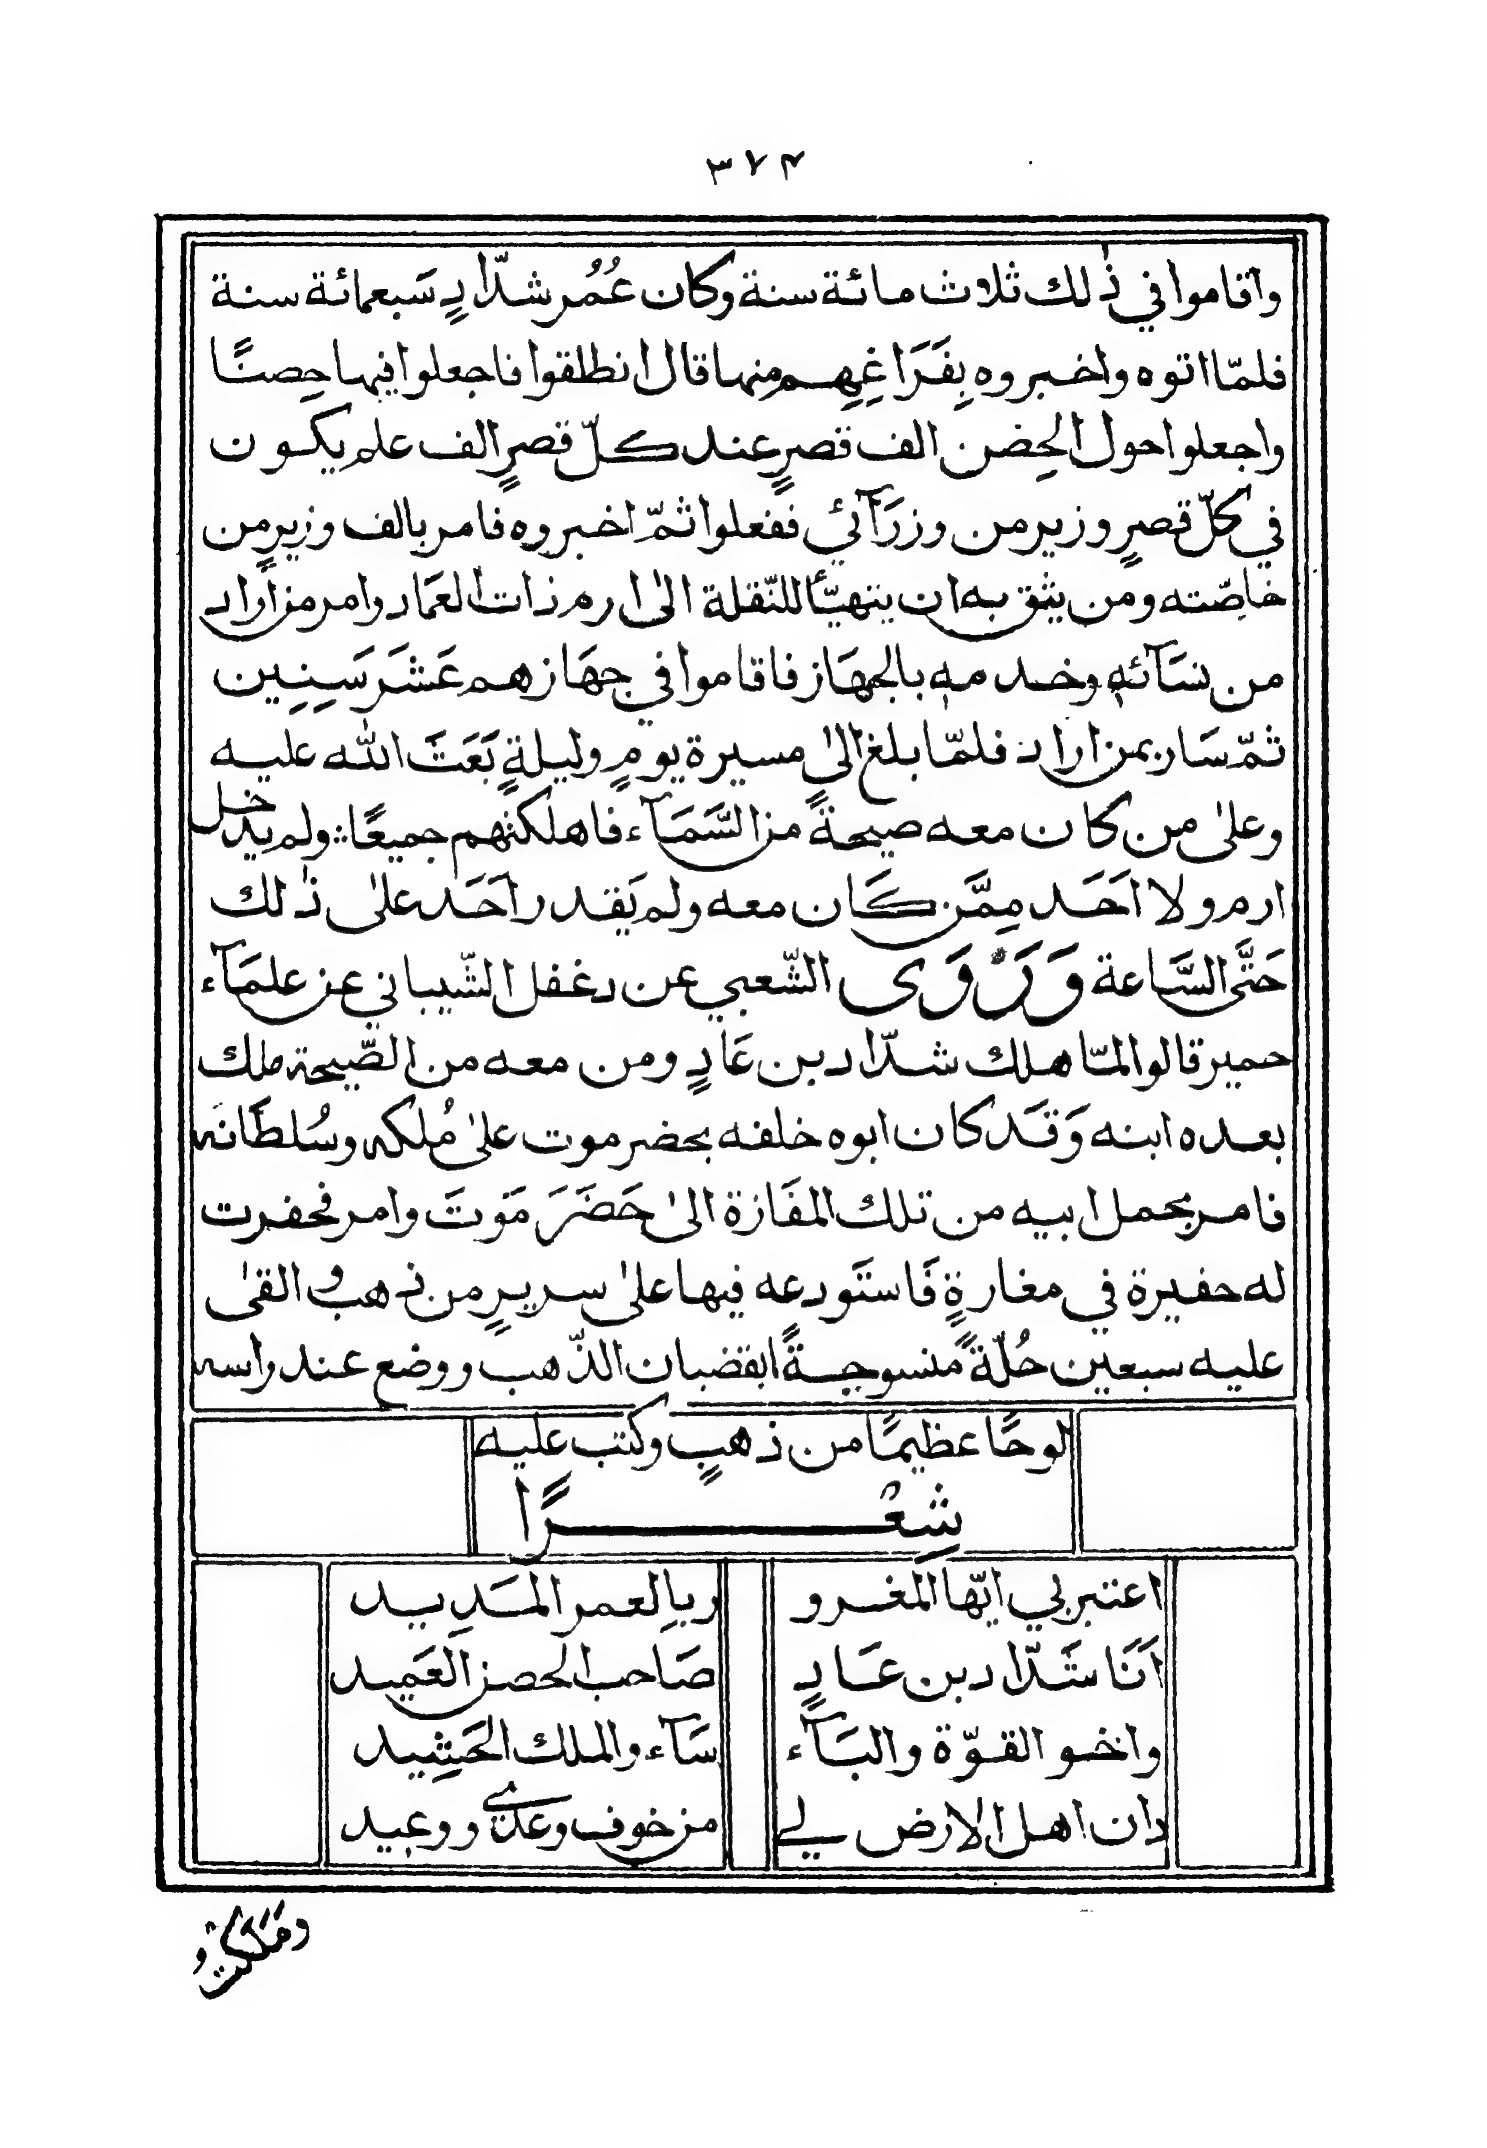 ٣٧٤
واقاموا في ذٰلك ثلاث مائة سنة وكان عُمُر شدّادٍ سَبعمائة سنة
فلمّا اتوه واخبروه بِفَرَاغِهِم منها قال انطلقوا فاجعلوا فيها حِصنًا
واجعلوا حول الحِضن الف قصرٍ عند كلّ قصرٍ الف علم يكون
في كلّ قصرٍ وزير من وزرَآئي ففعلوا ثمّ اخبروه فامر بالف وزيرٍ من
خاصّته ومن يثق به ان يتهيّأ للنّقلة الىٰ ارم ذات العمَاد وامر من اراد
من نسَآئهٖ وخدمهٖ بالجهَاز فاقاموا في جهَازهم عَشَر سَنِين
ثمّ سَار بمن اراد فلمّا بلغ الىٰ مسيرة يومٍ وليلةٍ بَعَثَ اللّٰه عليه
وعلىٰ من كان معه صيحةً من السَّمَآء فاهلكتهم جميعًا ولم يدخل
ارم ولا احَد مِمَّن كَان معه ولم يَقدر احَد علىٰ ذٰلك
حَتَّى السَّاعة وَرَوَى الشّعبي عن دغفل الشّيباني عن علمَآء
حمير قالوا لمّا هلك شدّاد بن عَادٍ ومن معه من الصّيحة ملك
بعده ابنه وَقَد كان ابوه خلفه بحضرموت علىٰ مُلكه وسُلطَانه
فامر بحمل ابيه من تلك المفَازة الىٰ حَضَرَمَوتَ وامر فحفرت
له حفيرة في مغارةٍ فَاستَودعه فيها علىٰ سريرٍ من ذهب والقىٰ
عليه سبعين حُلّةً منسوجةً بقضبان الذّهب ووضع عند راسه
لوحًا عظيمًا من ذهبٍ وكتب عليه
شِعْرًا
اعتبر بي ايّها المغرو ر بِالعمر المَدِيد
اَنَا شَدّاد بن عَادٍ صَاحب الحصن العَمِيد
واخو القوّة والبَآء سَآء والملك الحَشِيد
دان اهل الارض لي من خوف وعدي ووعيد
وَمَلَكْتُ